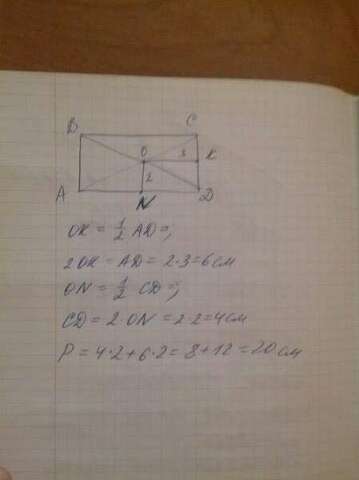 B C
O 3 K
2
A N D
OK = 1/2 AD =;
2OK = AD = 2·3=6см
ON = 1/2 CD =;
CD = 2·ON = 2·2=4см
P = 4·2+6·2= 8+12=20см